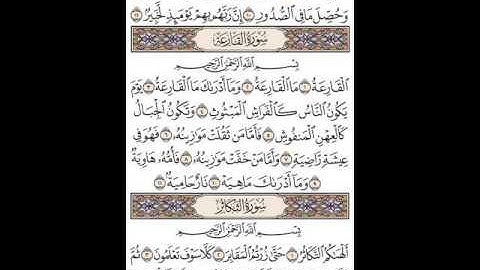 وَحُصِّلَ مَا فِي ٱلصُّدُورِ ١٠ إِنَّ رَبَّهُم بِهِمْ يَوْمَئِذٍ لَّخَبِيرٌۢ ١١
سُورَةُ القَارِعَةِ
بِسْمِ ٱللَّهِ ٱلرَّحْمَٰنِ ٱلرَّحِيمِ
ٱلْقَارِعَةُ ١ مَا ٱلْقَارِعَةُ ٢ وَمَآ أَدْرَىٰكَ مَا ٱلْقَارِعَةُ ٣ يَوْمَ
يَكُونُ ٱلنَّاسُ كَٱلْفَرَاشِ ٱلْمَبْثُوثِ ٤ وَتَكُونُ ٱلْجِبَالُ
كَٱلْعِهْنِ ٱلْمَنفُوشِ ٥ فَأَمَّا مَن ثَقُلَتْ مَوَٰزِينُهُۥ ٦ فَهُوَ فِي
عِيشَةٍ رَّاضِيَةٍ ٧ وَأَمَّا مَنْ خَفَّتْ مَوَٰزِينُهُۥ ٨ فَأُمُّهُۥ هَاوِيَةٌ
٩ وَمَآ أَدْرَىٰكَ مَا هِيَهْ ١٠ نَارٌ حَامِيَةٌۢ ١١
سُورَةُ التَّكَاثُرِ
بِسْمِ ٱللَّهِ ٱلرَّحْمَٰنِ ٱلرَّحِيمِ
أَلْهَىٰكُمُ ٱلتَّكَاثُرُ ١ حَتَّىٰ زُرْتُمُ ٱلْمَقَابِرَ ٢ كَلَّا سَوْفَ تَعْلَمُونَ ٣ ثُمَّ